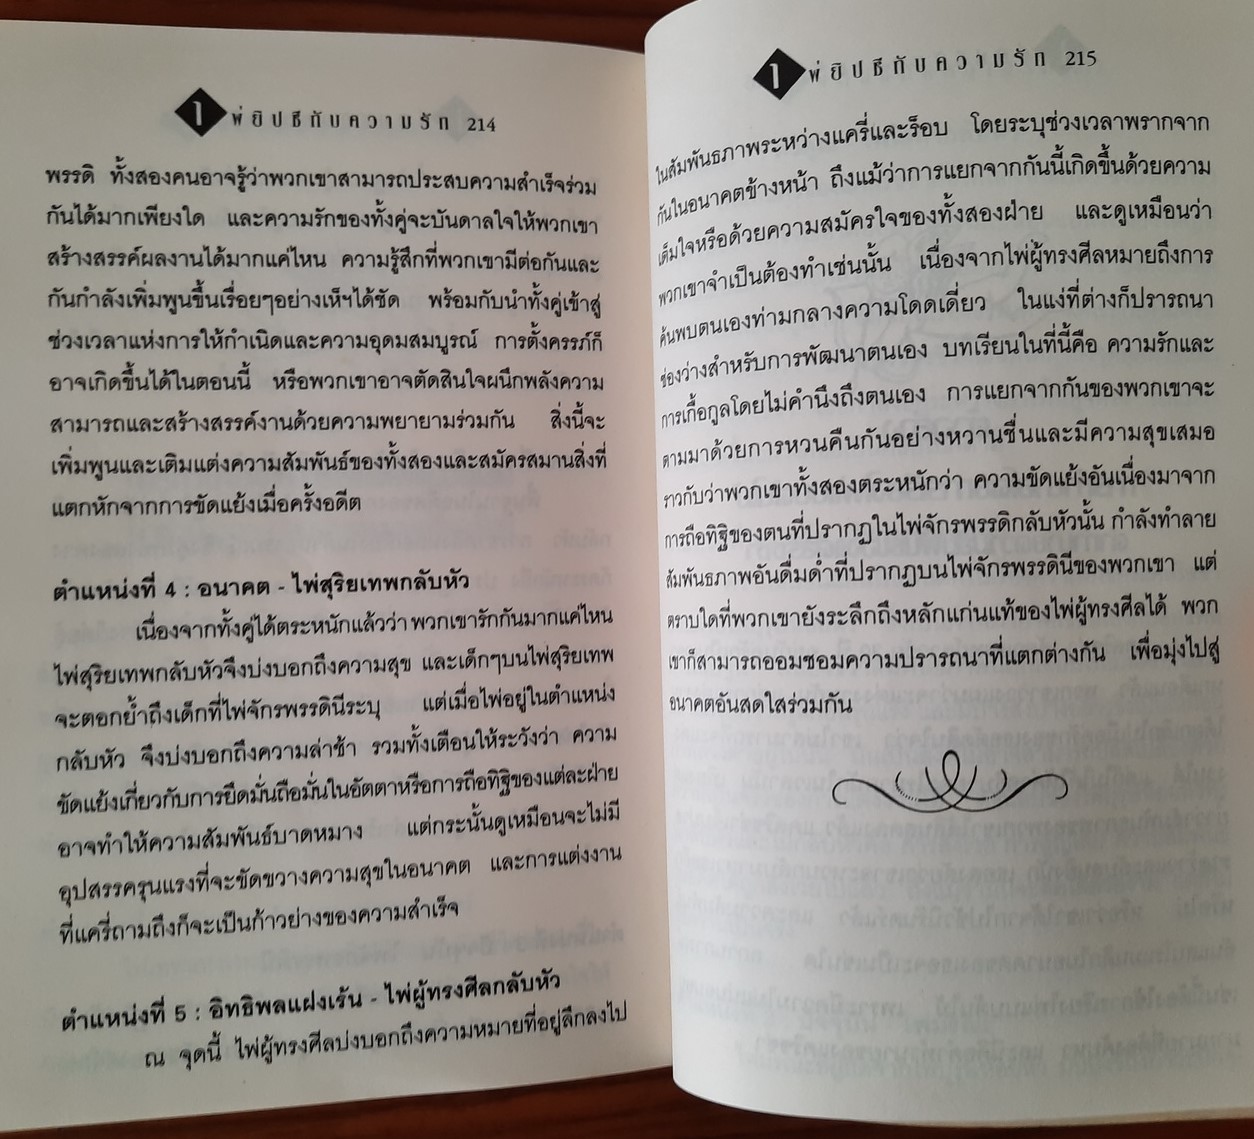 ไพ่ยิปซีกับความรัก 214
พรรดิ ทั้งสองคนอาจรู้ว่าพวกเขาสามารถประสบความสำเร็จร่วม
กันได้มากเพียงใด และความรักของทั้งคู่จะบันดาลใจให้พวกเขา
สร้างสรรค์ผลงานได้มากแค่ไหน ความรู้สึกที่พวกเขามีต่อกันและ
กันกำลังเพิ่มพูนขึ้นเรื่อยๆอย่างเห็นได้ชัด พร้อมกับนำทั้งคู่เข้าสู่
ช่วงเวลาแห่งการให้กำเนิดและความอุดมสมบูรณ์ การตั้งครรภ์ก็
อาจเกิดขึ้นได้ในตอนนี้ หรือพวกเขาอาจตัดสินใจผนึกพลังความ
สามารถและสร้างสรรค์งานด้วยความพยายามร่วมกัน สิ่งนี้จะ
เพิ่มพูนและเติมแต่งความสัมพันธ์ของทั้งสองและสมัครสมานสิ่งที่
แตกหักจากการขัดแย้งเมื่อครั้งอดีต
ตำแหน่งที่ 4 : อนาคต - ไพ่สุริยเทพกลับหัว
เนื่องจากทั้งคู่ได้ตระหนักแล้วว่า พวกเขารักกันมากแค่ไหน
ไพ่สุริยเทพกลับหัวจึงบ่งบอกถึงความสุข และเด็กๆบนไพ่สุริยเทพ
จะตอกย้ำถึงเด็กที่ไพ่จักรพรรดินีระบุ แต่เมื่อไพ่อยู่ในตำแหน่ง
กลับหัว จึงบ่งบอกถึงความล่าช้า รวมทั้งเตือนให้ระวังว่า ความ
ขัดแย้งเกี่ยวกับการยึดมั่นถือมั่นในอัตตาหรือการถือทิฐิของแต่ละฝ่าย
อาจทำให้ความสัมพันธ์บาดหมาง แต่กระนั้นดูเหมือนจะไม่มี
อุปสรรครุนแรงที่จะขัดขวางความสุขในอนาคต และการแต่งงาน
ที่แครี่ถามถึงก็จะเป็นก้าวย่างของความสำเร็จ
ตำแหน่งที่ 5 : อิทธิพลแฝงเร้น - ไพ่ผู้ทรงศีลกลับหัว
ณ จุดนี้ ไพ่ผู้ทรงศีลบ่งบอกถึงความหมายที่อยู่ลึกลงไป
ไพ่ยิปซีกับความรัก 215
ในสัมพันธภาพระหว่างแครี่และร็อบ โดยระบุช่วงเวลาพรากจาก
กันในอนาคตข้างหน้า ถึงแม้ว่าการแยกจากกันนี้เกิดขึ้นด้วยความ
เต็มใจหรือด้วยความสมัครใจของทั้งสองฝ่าย และดูเหมือนว่า
พวกเขาจำเป็นต้องทำเช่นนั้น เนื่องจากไพ่ผู้ทรงศีลหมายถึงการ
ค้นพบตนเองท่ามกลางความโดดเดี่ยว ในแง่ที่ต่างก็ปรารถนา
ช่องว่างสำหรับการพัฒนาตนเอง บทเรียนในที่นี้คือ ความรักและ
การเกื้อกูลโดยไม่คำนึงถึงตนเอง การแยกจากกันของพวกเขาจะ
ตามมาด้วยการหวนคืนกันอย่างหวานชื่นและมีความสุขเสมอ
ราวกับว่าพวกเขาทั้งสองตระหนักว่า ความขัดแย้งอันเนื่องมาจาก
การถือทิฐิของตนที่ปรากฏในไพ่จักรพรรดิกลับหัวนั้น กำลังทำลาย
สัมพันธภาพอันดื่มด่ำที่ปรากฏบนไพ่จักรพรรดินีของพวกเขา แต่
ตราบใดที่พวกเขายังระลึกถึงหลักแก่นแท้ของไพ่ผู้ทรงศีลได้ พวก
เขาก็สามารถออมชอมความปรารถนาที่แตกต่างกัน เพื่อมุ่งไปสู่
อนาคตอันสดใสร่วมกัน